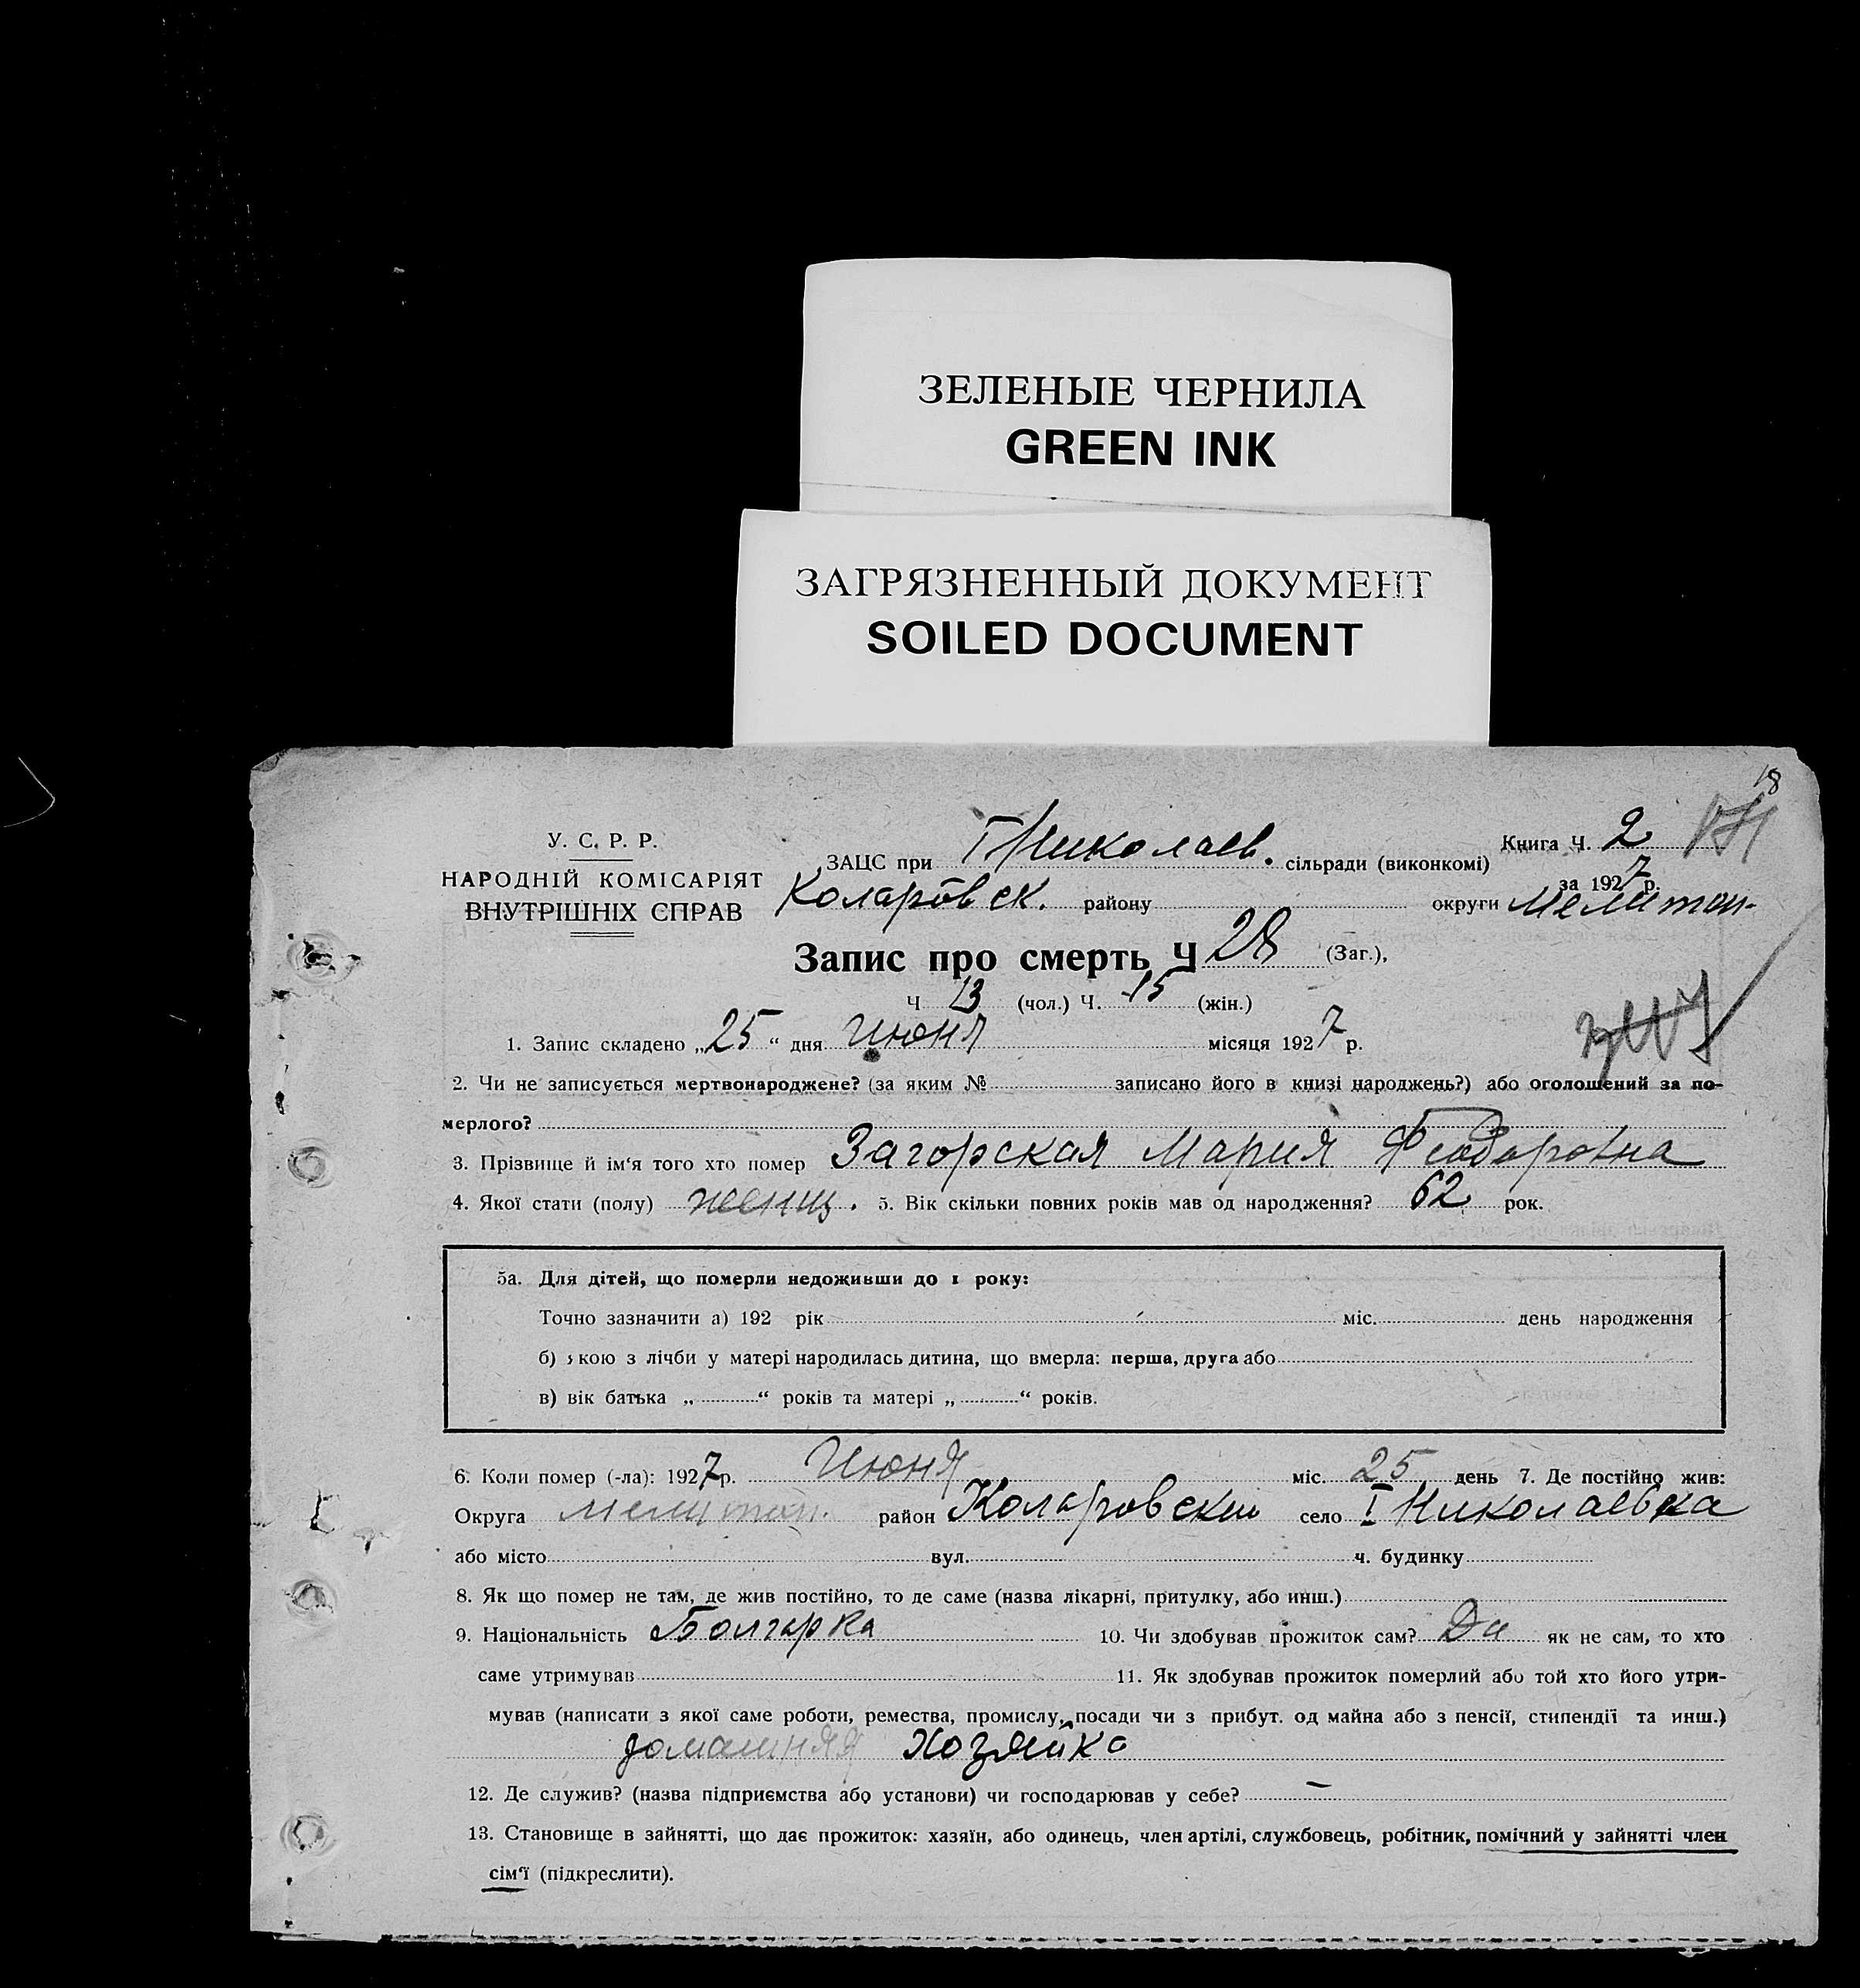 ЗЕЛЕНЫЕ ЧЕРНИЛА
GREEN INK
ЗАГРЯЗНЕННЫЙ ДОКУМЕНТ
SOILED DOCUMENT
18
У. С. Р. Р.
НАРОДНІЙ КОМІСАРІЯТ
ВНУТРІШНІХ СПРАВ
ЗАЦС при I Николаев. сільради (виконкомі)
Книга Ч. 2
за 1927 р.
Коларовск. району округи Мелитоп.
Запис про смерть Ч 28 (Заг.),
Ч 13 (чол.) Ч. 15 (жін.)
1. Запис складено „25“ дня июня місяця 1927 р.
2. Чи не записується мертвонароджене? (за яким № записано його в книзі народжень?) або оголошений за по-
мерлого?
3. Прізвище й ім‘я того хто помер Загорская Мария Феодоровна
4. Якої стати (полу) женщ. 5. Вік скільки повних років мав од народження? 62 рок.
5а. Для дітей, що померли недоживши до 1 року:
Точно зазначити а) 192 рік міс. день народження
б) якою з лічби у матері народилась дитина, що вмерла: перша, друга або
в) вік батька „ “ років та матері „ “ років.
6. Коли помер (-ла): 1927 р. Июня міс. 25 день 7. Де постійно жив:
Округа мелитоп. район Коларовский село I Николаевка
або місто вул. ч. будинку
8. Як що помер не там, де жив постійно, то де саме (назва лікарні, притулку, або инш.)
9. Національність Болгарка 10. Чи здобував прожиток сам? Да як не сам, то хто
саме утримував 11. Як здобував прожиток померлий або той хто його утри-
мував (написати з якої саме роботи, ремества, промислу, посади чи з прибут. од майна або з пенсії, стипендії та инш.)
домашняя хозяйка
12. Де служив? (назва підприємства або установи) чи господарював у себе? —
13. Становище в зайнятті, що дає прожиток: хазяїн, або одинець, член артілі, службовець, робітник, помічний у зайнятті член
сім‘ї (підкреслити).